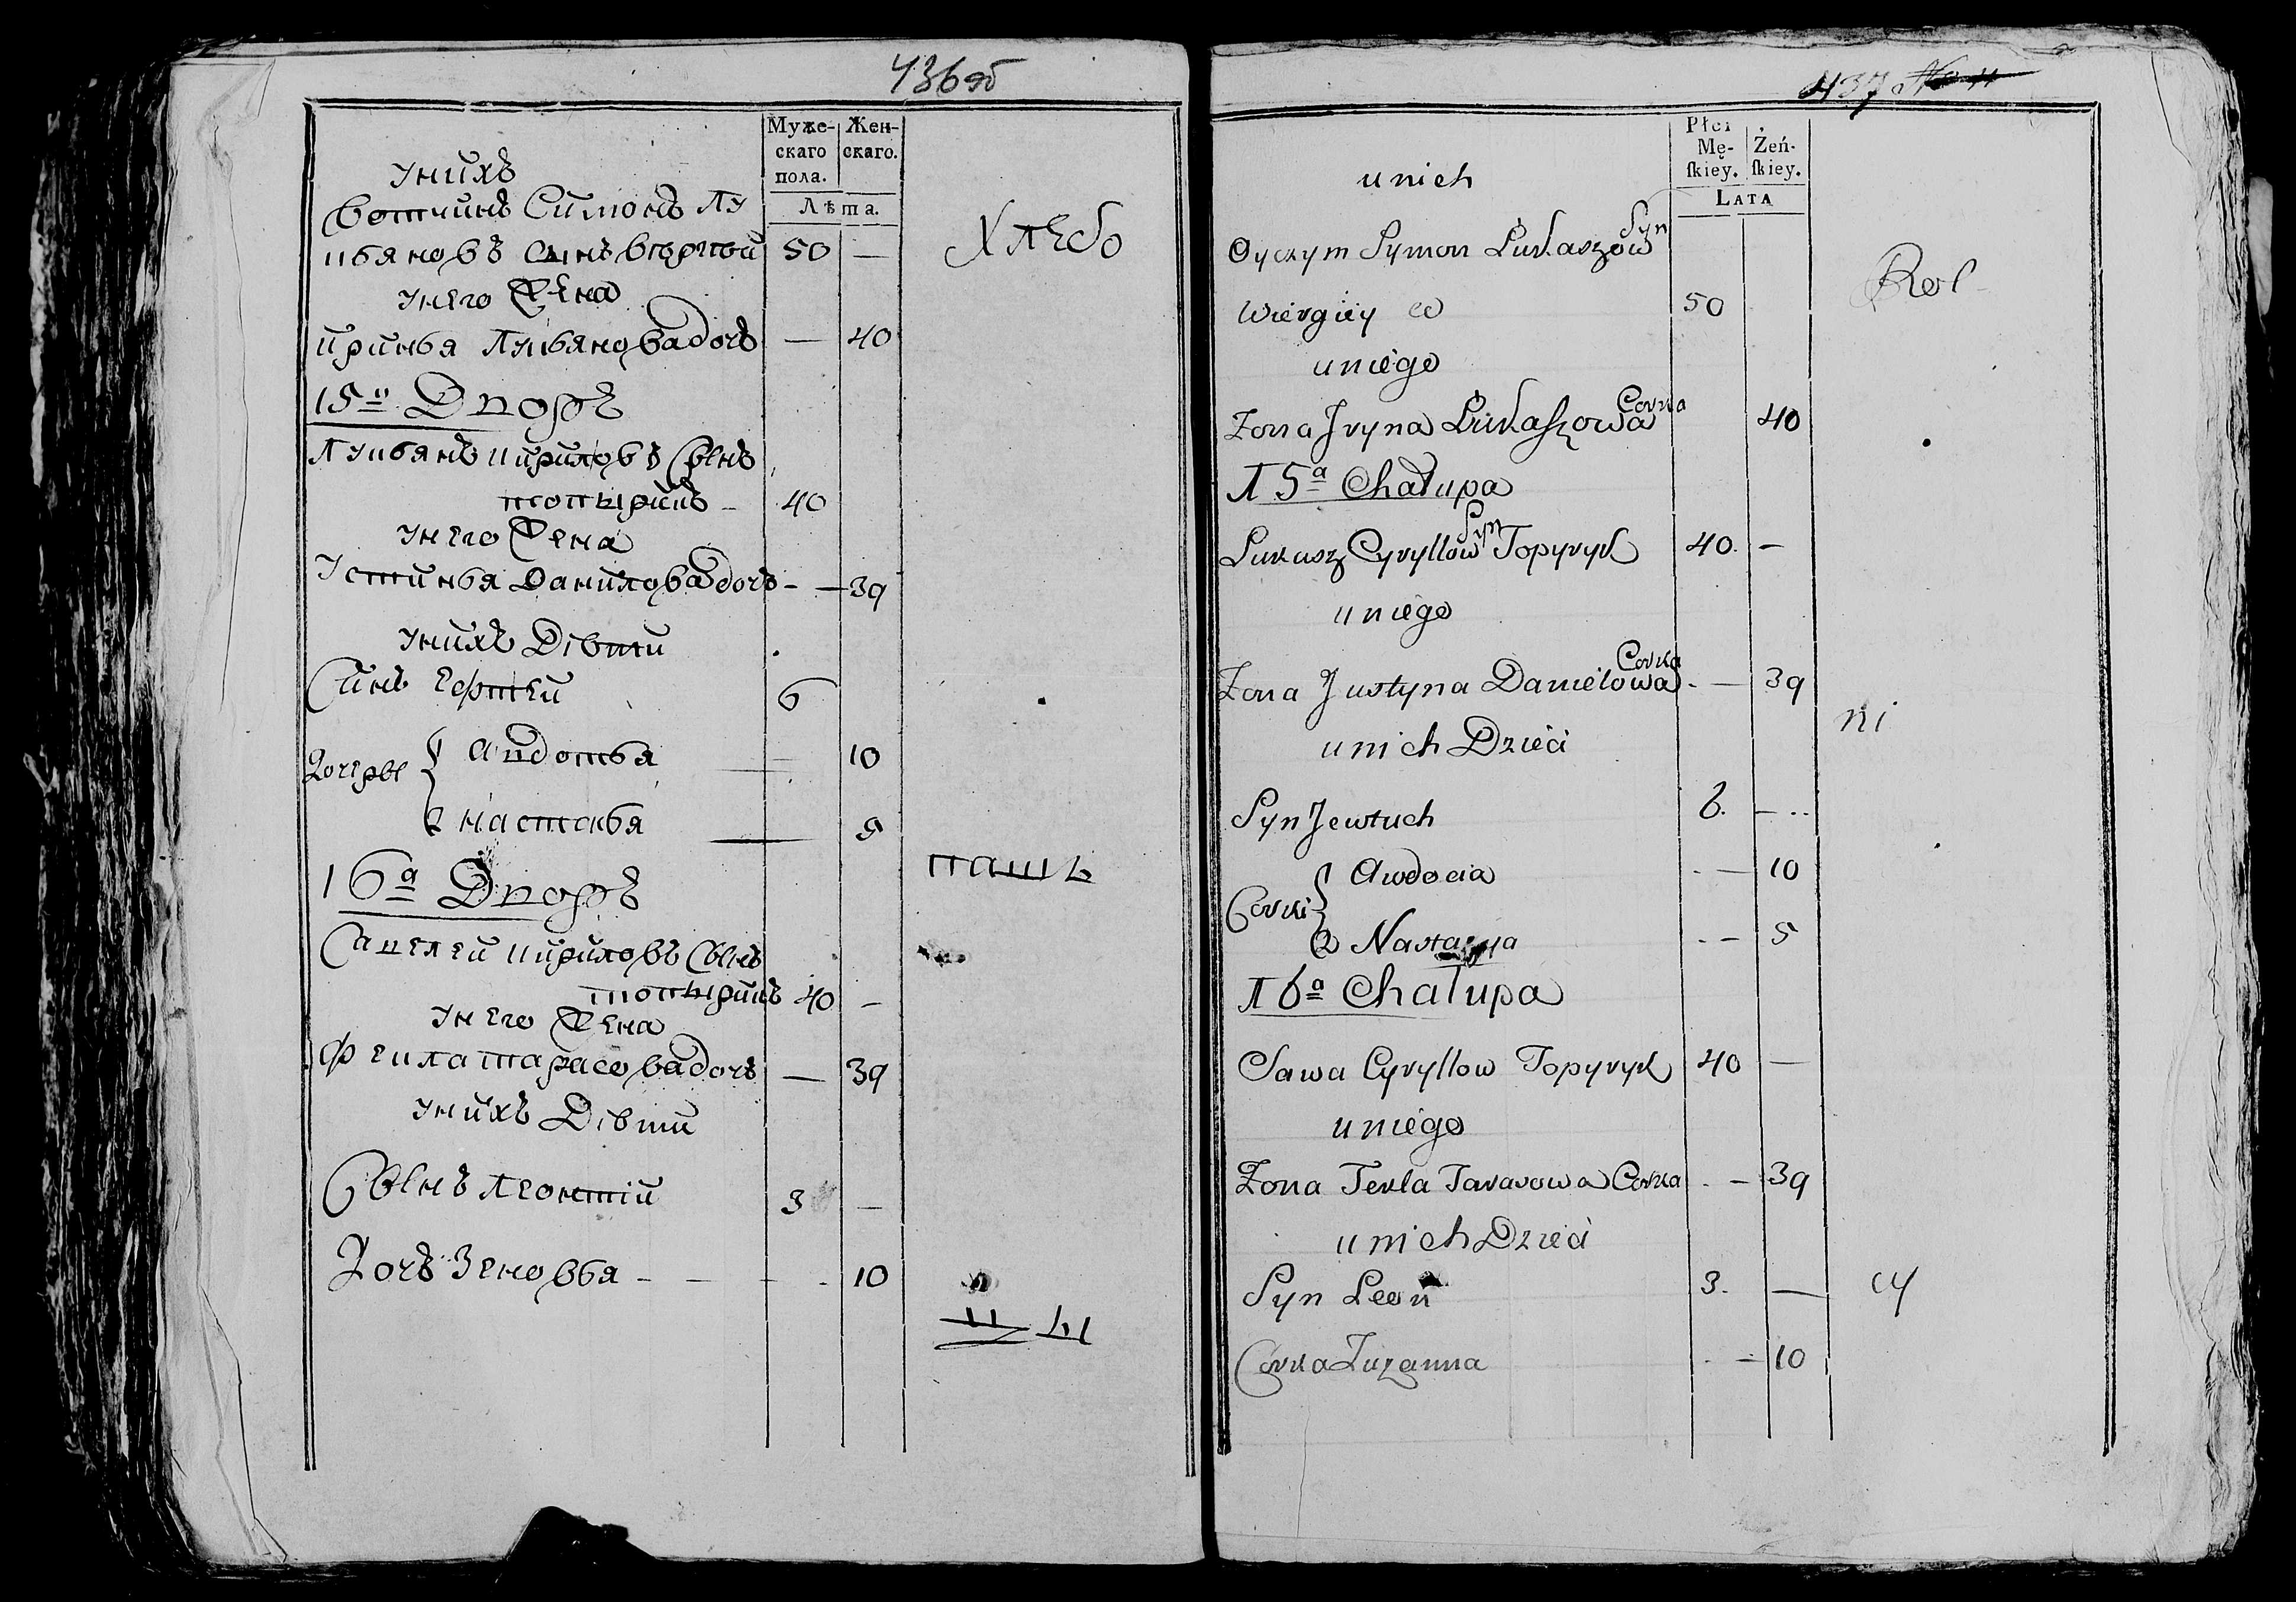 436 об
Муже-
скаго
пола.
Жен-
скаго.
Лѣта.
унихъ
Вотчимъ Симонъ Лу
кьяновъ сынъ
50 —
Хлебо
унего жена
иринья Лукьянова дочь — 40
15ӥ Дворъ
Лукьянъ кириловъ Сынъ
топырикъ — 40
унего жена
Устинья Данилова дочь — — 39
унихъ Дѣти
Синъ Ефтей 6
Дочеры { Авдотья — 10
2 Настасья — 5
16й Дворъ
пашь
Савелей кириловъ Сынъ
топырикъ 40 —
унего жена
Фекла тарасова дочь — 39
унихъ Дѣти
Сынъ леонтій 3 —
Дочь Зеновья — — — 10
цы
437
Płci
Mę-
ſkiey.
Żeń-
ſkiey.
LATA
unich
Oyczym Symon Łukaszow Syn
Wiergiey 50
Rol
uniego
Zona Iryna Łukaszowa Corka 40
15a Chałupa
Łukasz Cyryllow Syn Topyryk 40. —
uniego
Zona Justyna Daniełowa Corka — 39
ni
unich Dzieci
Syn Jewtuch 6. —
Corki { Awdocia — 10
2 Nastazya — 5
16a Chałupa
Sawa Cyryllow Topyryk 40 —
uniego
Zona Tekla Tarasowa Corka — 39
unich Dzieci
Syn Leon 3. —
cy
Corka Zuzanna — 10